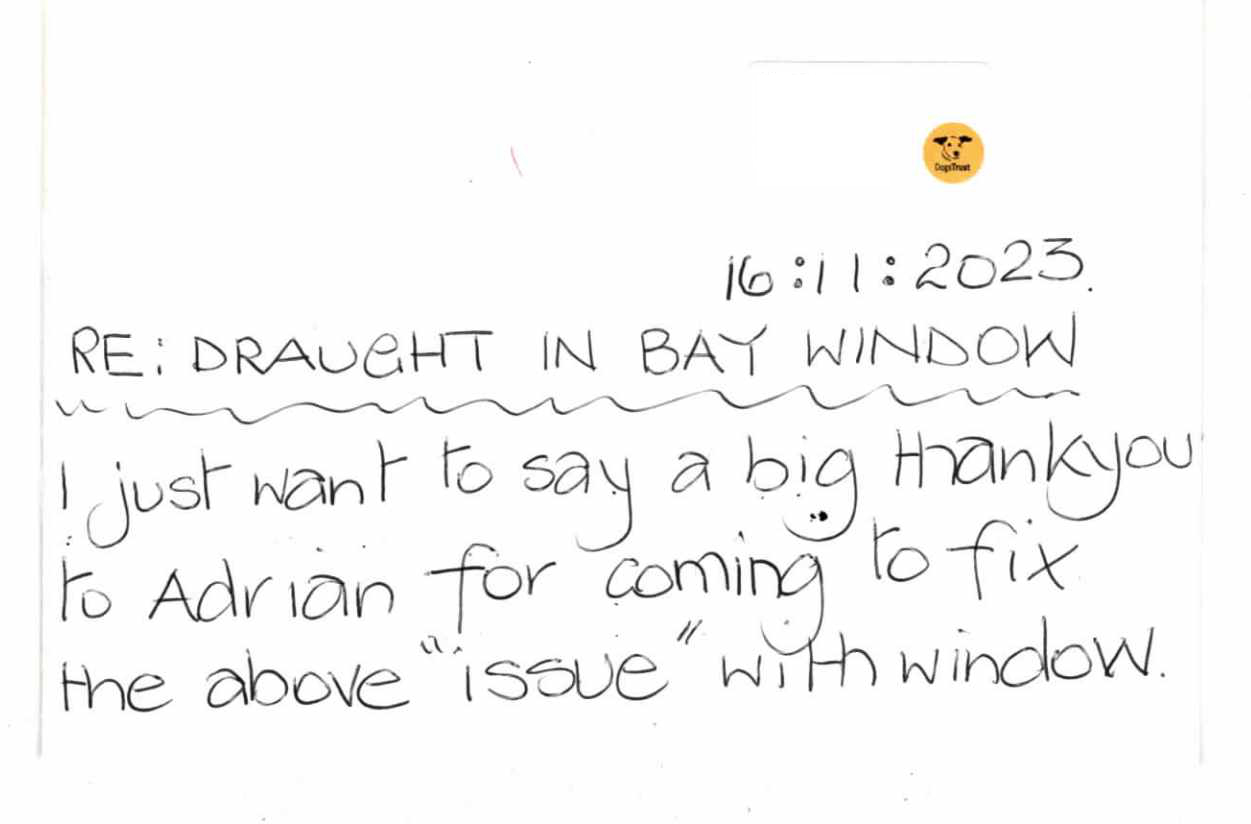 DogsTrust
16:11:2023.
RE: DRAUGHT IN BAY WINDOW
I just want to say a big thankyou
to Adrian for coming to fix
the above "issue" with window.